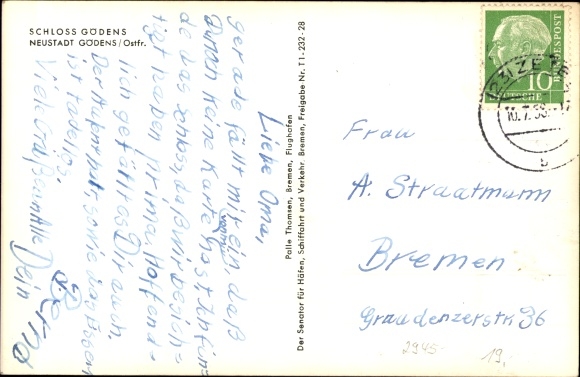 SCHLOSS GÖDENS
NEUSTADT GÖDENS/Ostfr.
Liebe Oma,
gerade fällt mir ein, daß
Du noch keine Karte hast. Ich fin=
de das Schloss, daß wir besich=
tigt haben prima. Hoffend=
lich gefällt es Dir auch.
Der Aufenthalt, sowie das Essen
ist tadellos.
Viele Grüße an Alle
Dein
Palle Thomsen, Bremen, Flughafen
Der Senator für Häfen, Schiffahrt und Verkehr. Bremen, Freigabe Nr. T1-232-28
DEUTSCHE BUNDESPOST
10
ZETEL
10.7.58
b
Frau
A. Straatmann
Bremen
Graudenzerstr. 36
2945
19,-